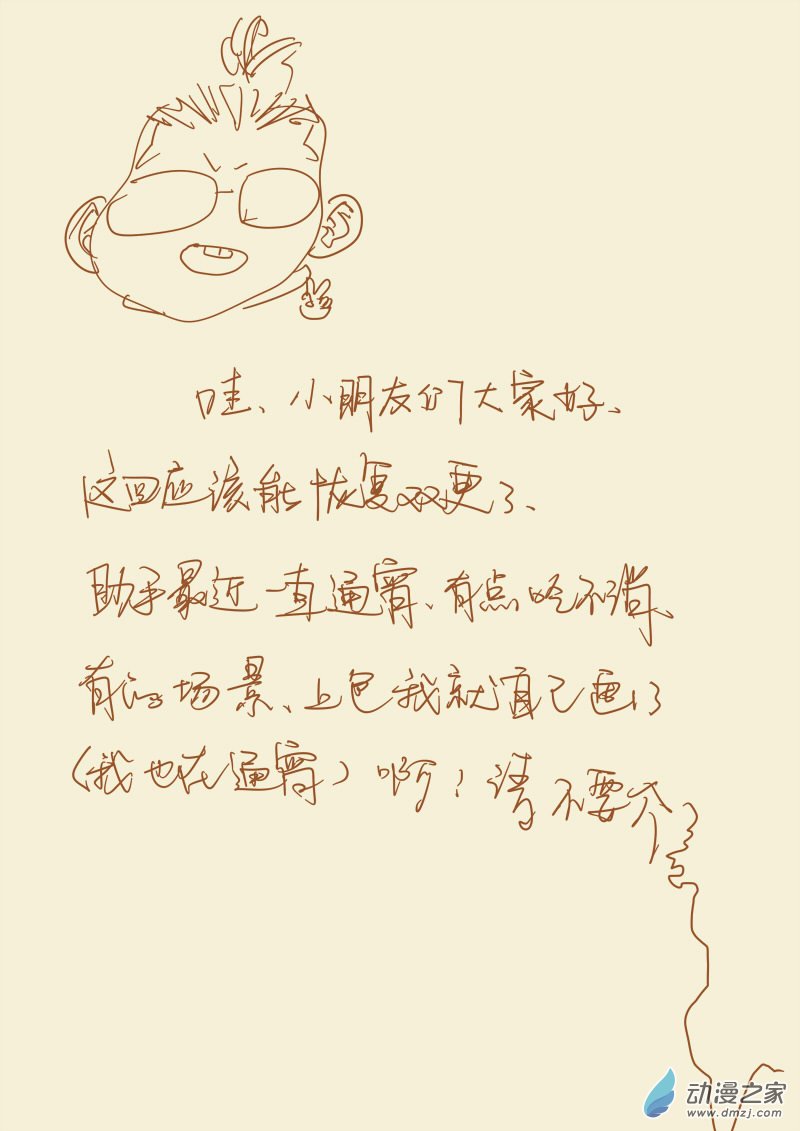 哇、小朋友们大家好、
这回应该能恢复双更了、
助手最近一直通宵、有点吃不消、
有的场景、上色我就自己画了
(我也在通宵)啊!请不要介
动漫之家
www.dmzj.com